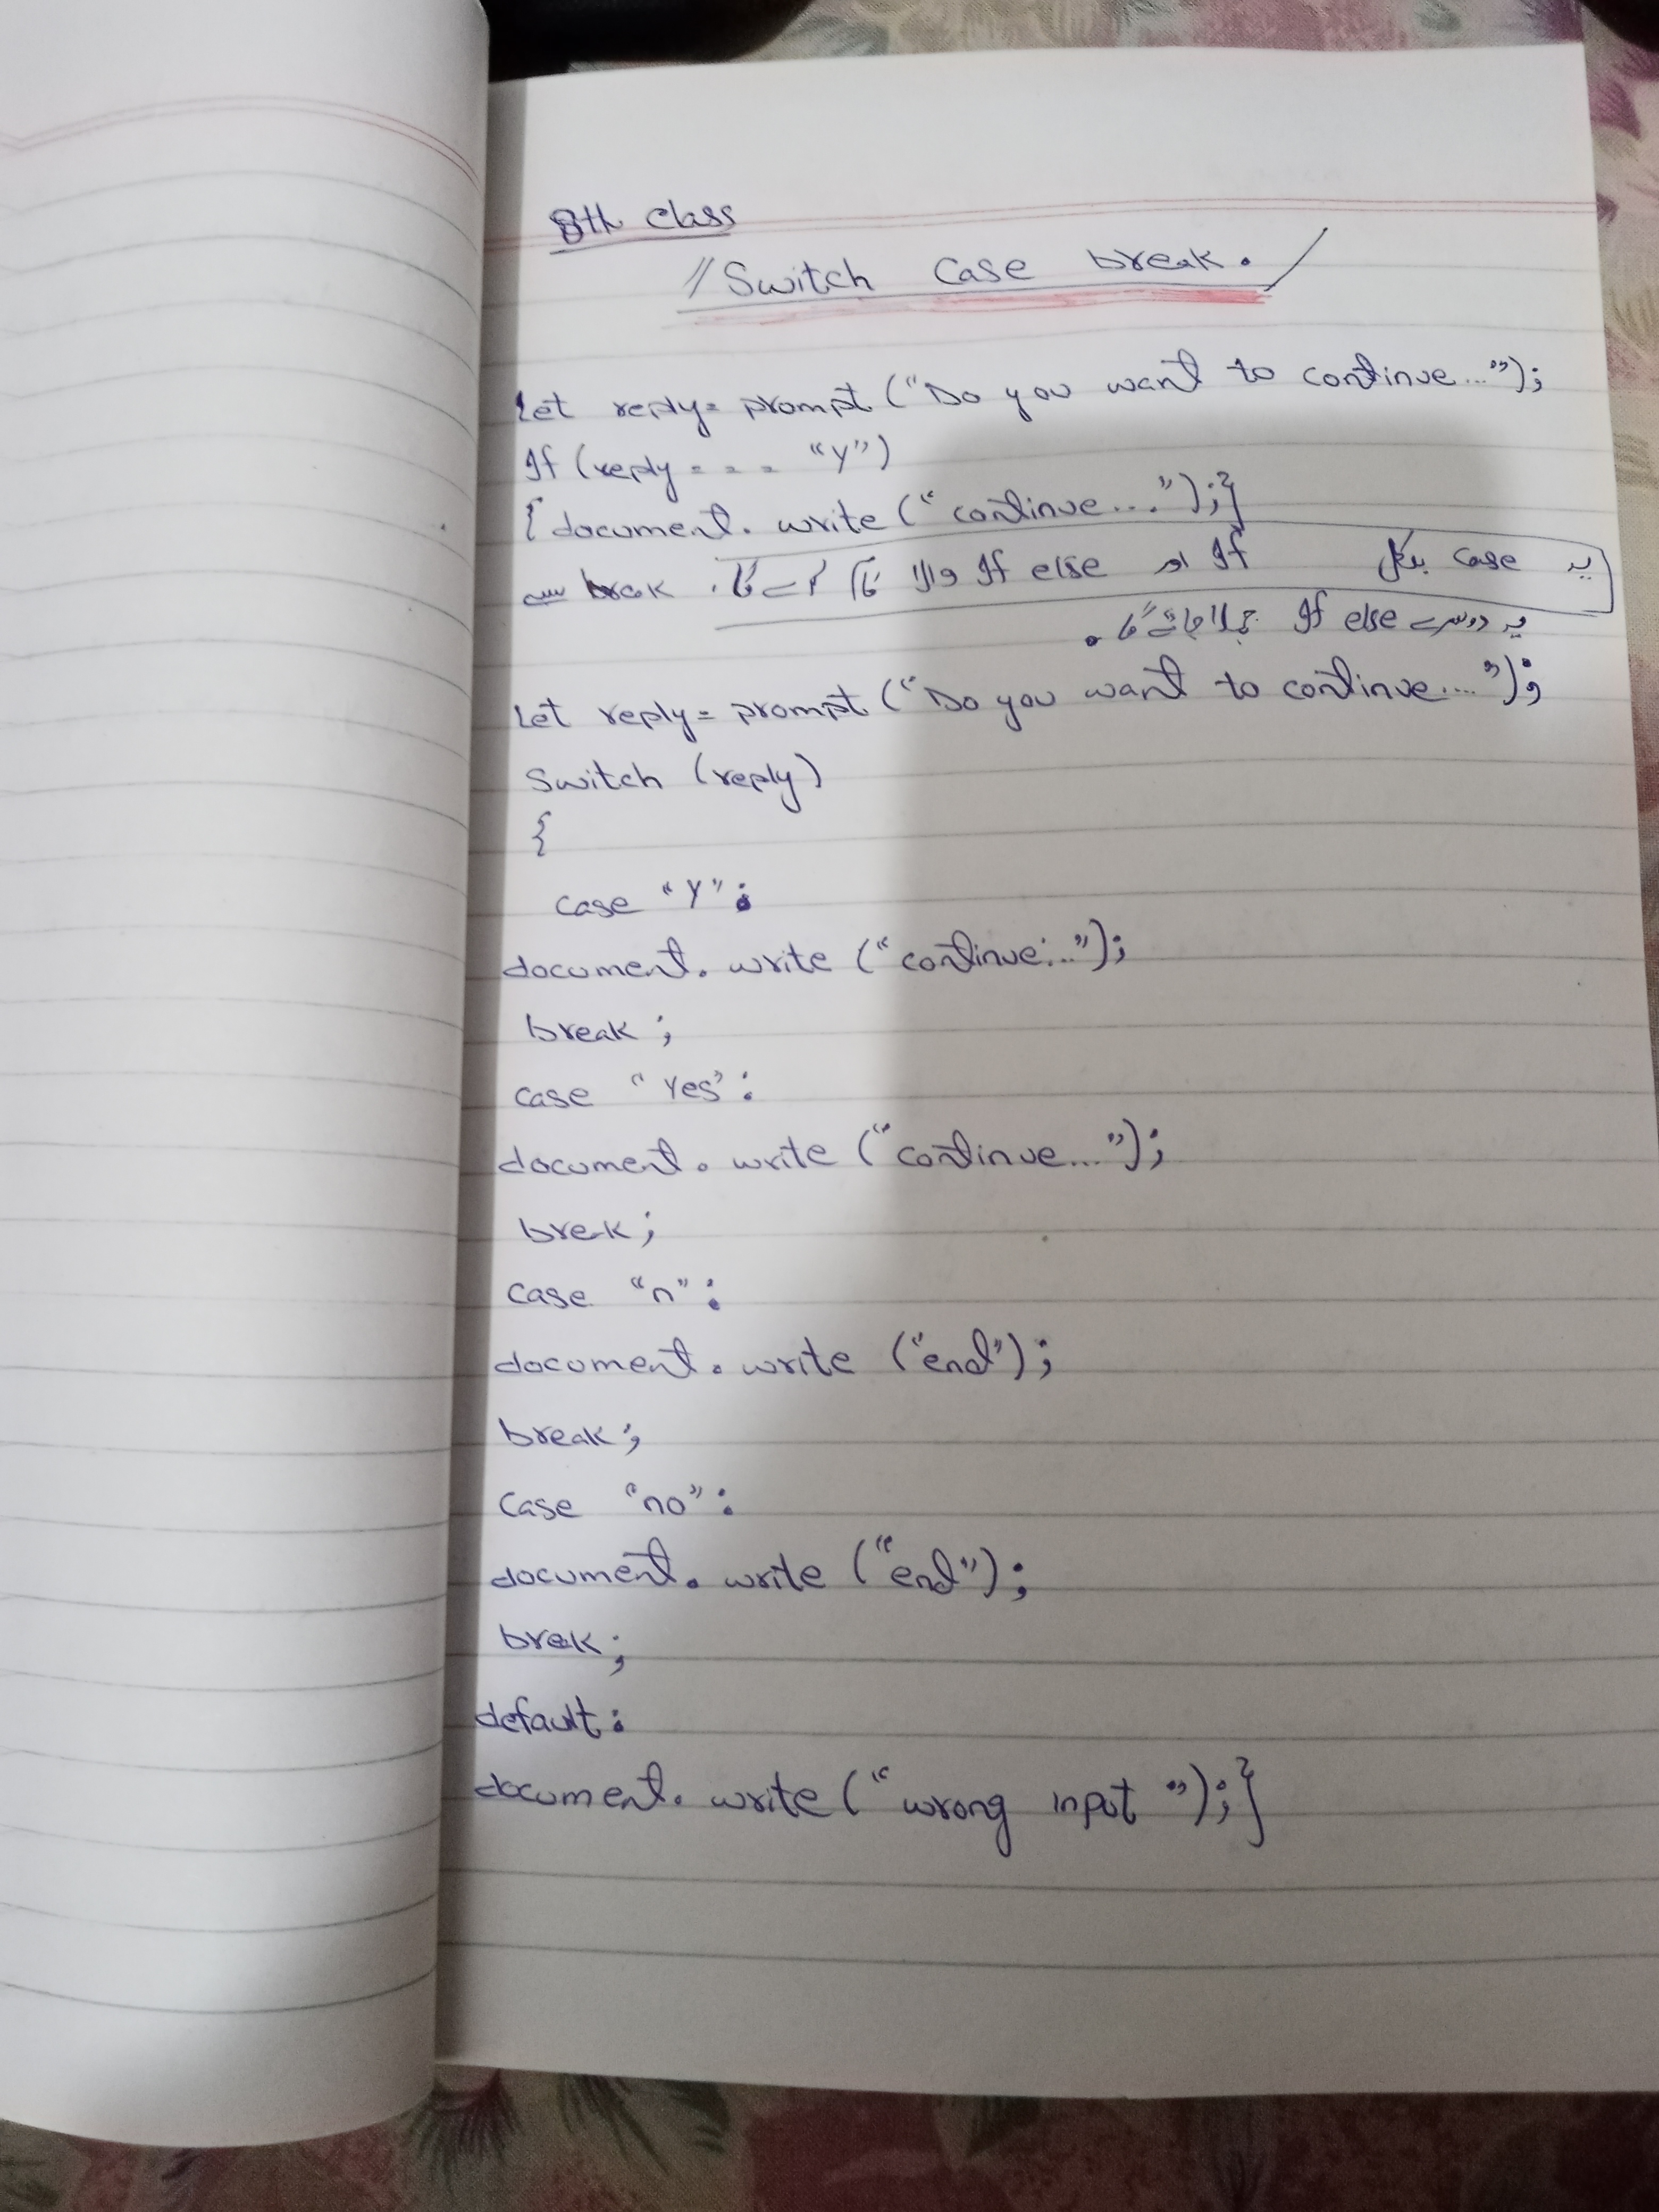 8th class
// Switch Case break.
Let reply= prompt ("Do you want to continue...");
If (reply = = = "Y")
{ document. write ("continue...");}
یہ case بلکل If اور If else والا کام کرے گا. break سے
یہ دوسرے If else چلا جائے گا.
Let reply= prompt ("Do you want to continue....");
Switch (reply)
{
case "Y":
document. write ("continue...");
break ;
case "Yes":
document. write ("continue...");
break;
case "n":
document. write ("end");
break;
Case "no":
document. write ("end");
break;
default:
document. write ("wrong input");}